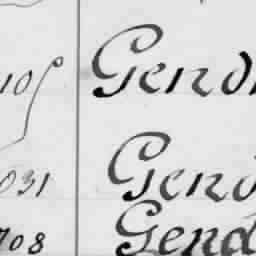 10 Gendr
031 Gend
708 Gend